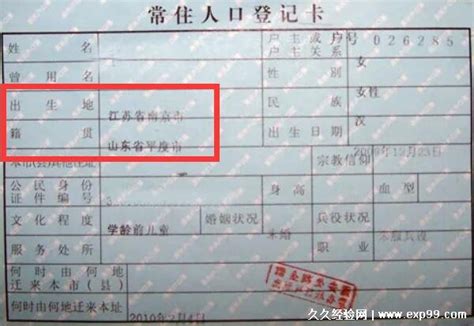 常住人口登记卡
姓 名 户主或 户主关 号系 026285
曾用名 性别 女
女性
出生地 江苏省南京市 民族 汉
籍贯 山东省平度市 出生日期 2006年12月23日
本市(县)其他住址 宗教信仰
公民身份证件编号 3 身高 血型
文化程度 学龄前儿童 婚姻状况 未婚 兵役状况 未服兵役
服务处所 职业
何时由何地迁来本市(县)
何时由何地迁来本址 2010年2月4日
久久经验网 | www.exp99.com